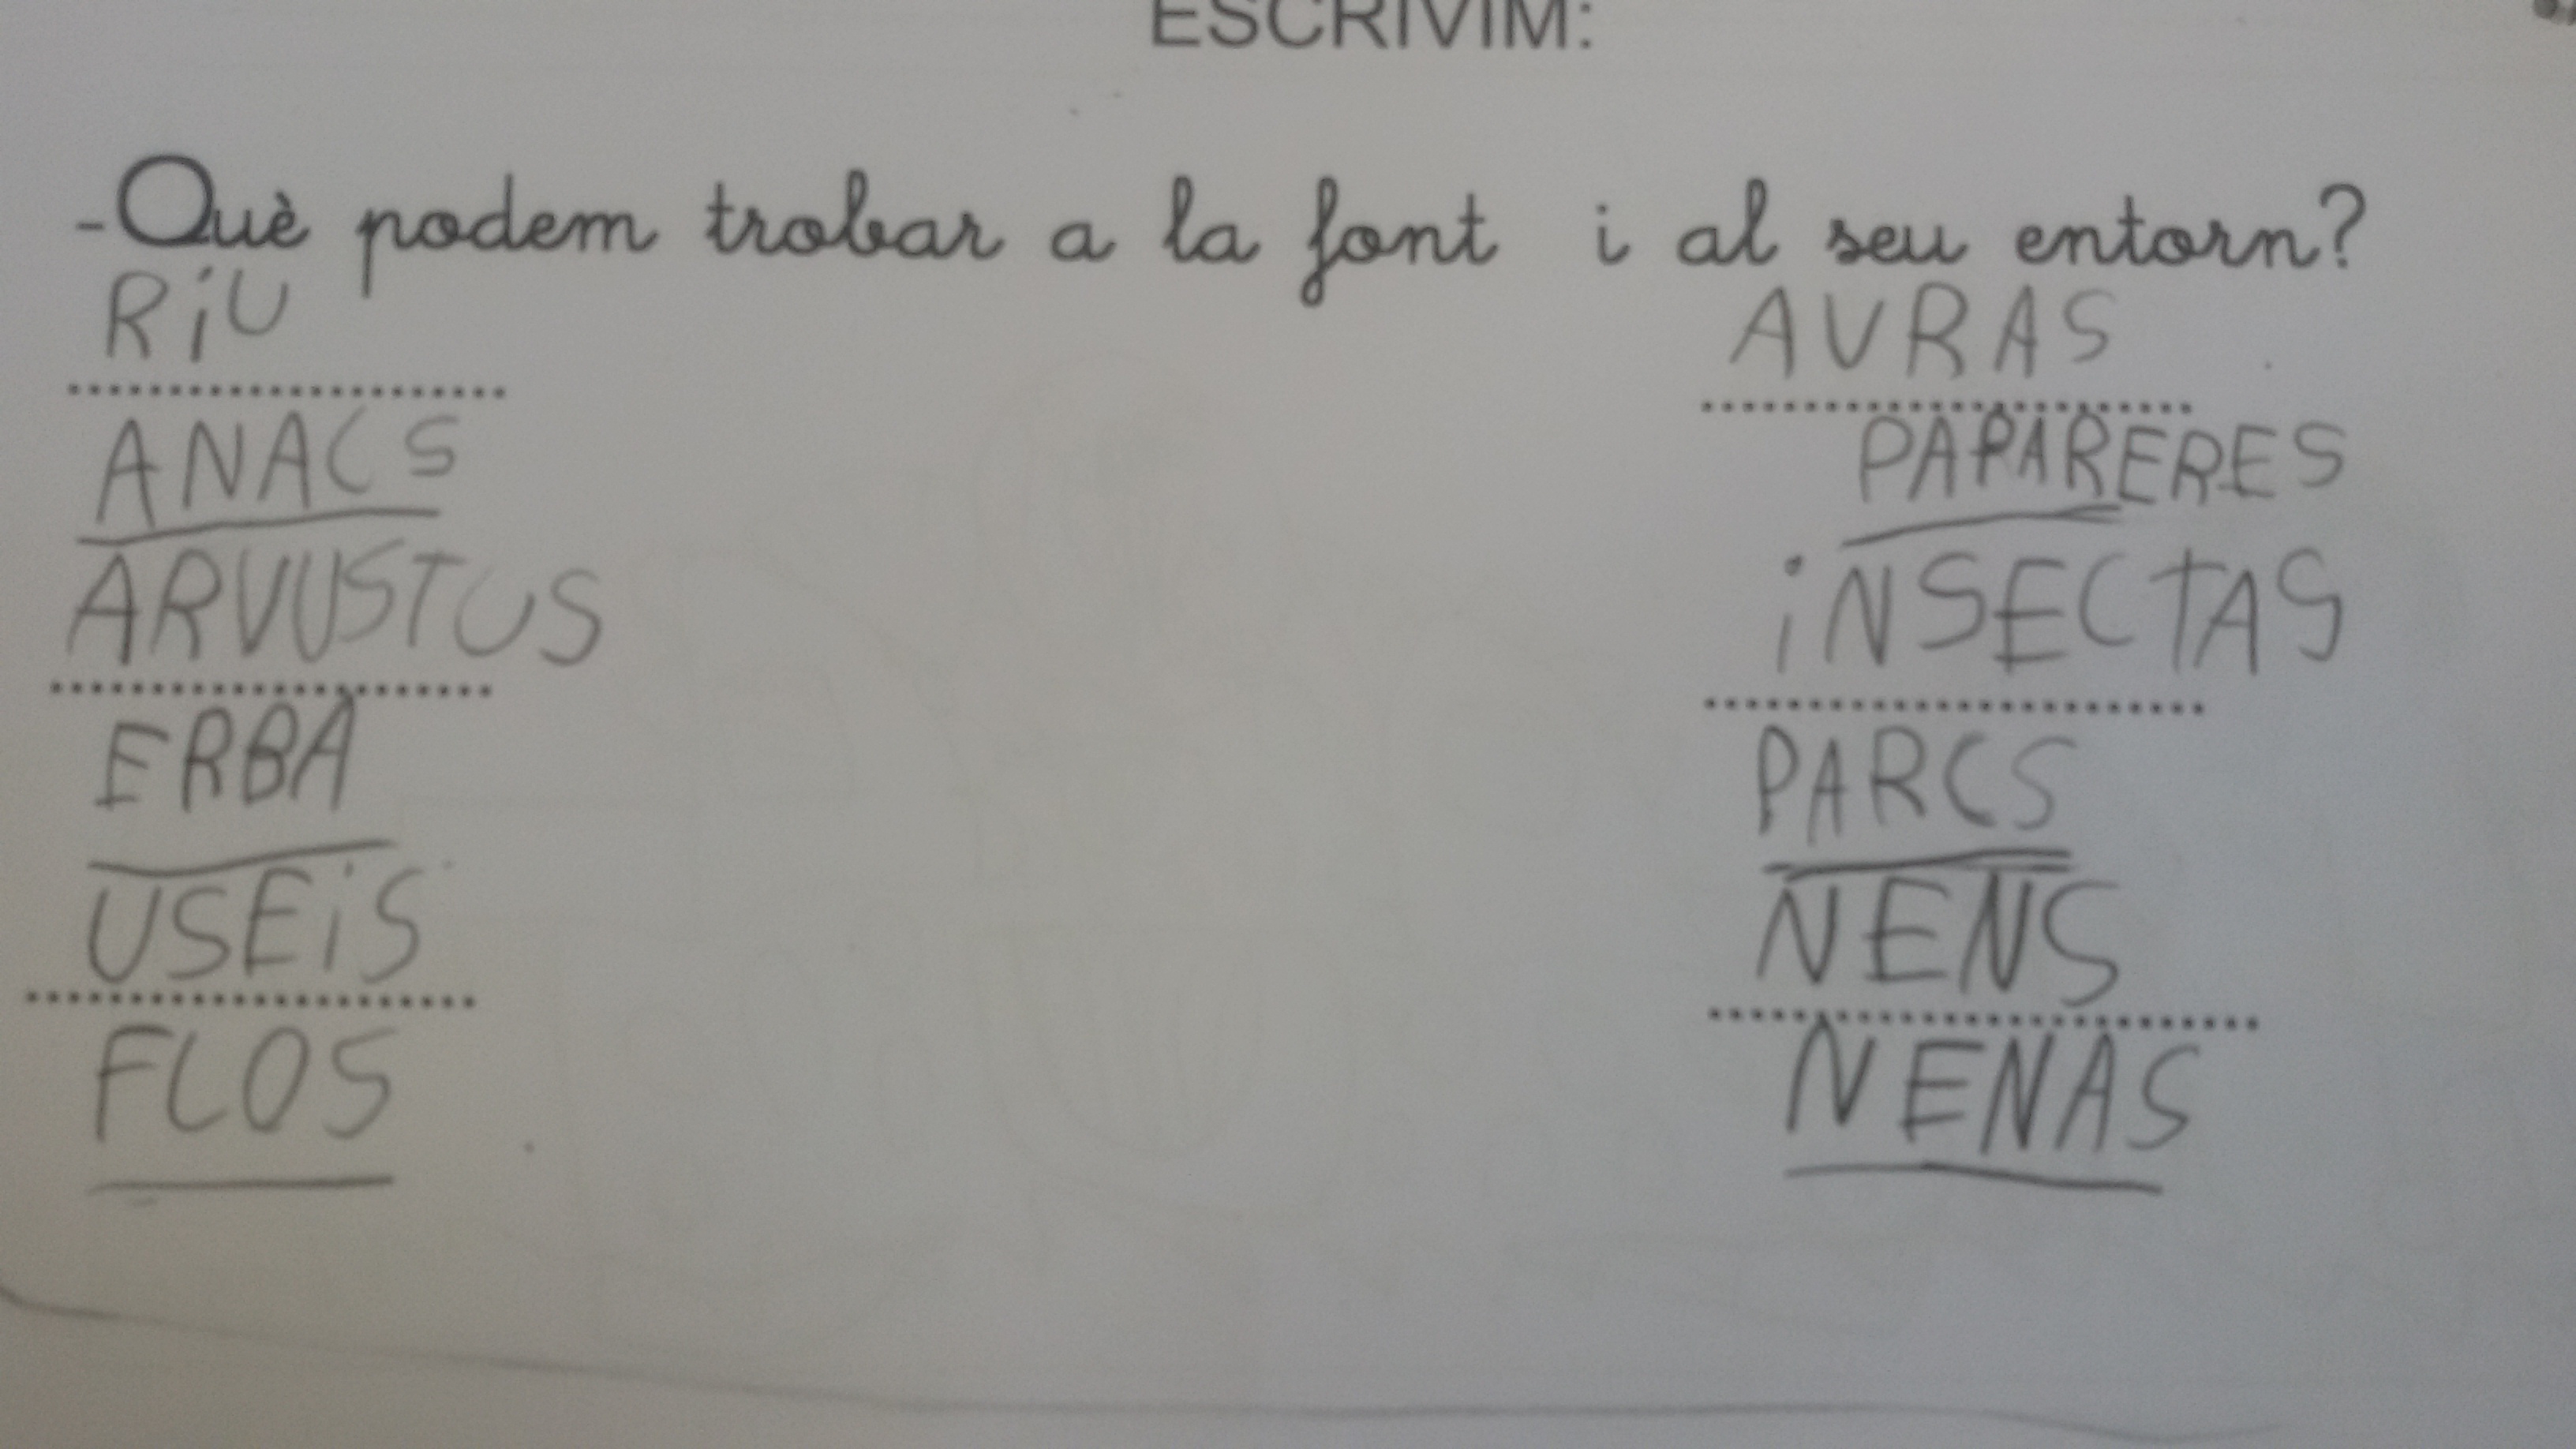 ESCRIVIM:
-Què podem trobar a la font i al seu entorn?
RiU
ANACS
ARVUSTUS
ERBA
USEiS
FLOS
AVRAS
PAPARERES
iNSECTAS
PARCS
NENS
NENAS